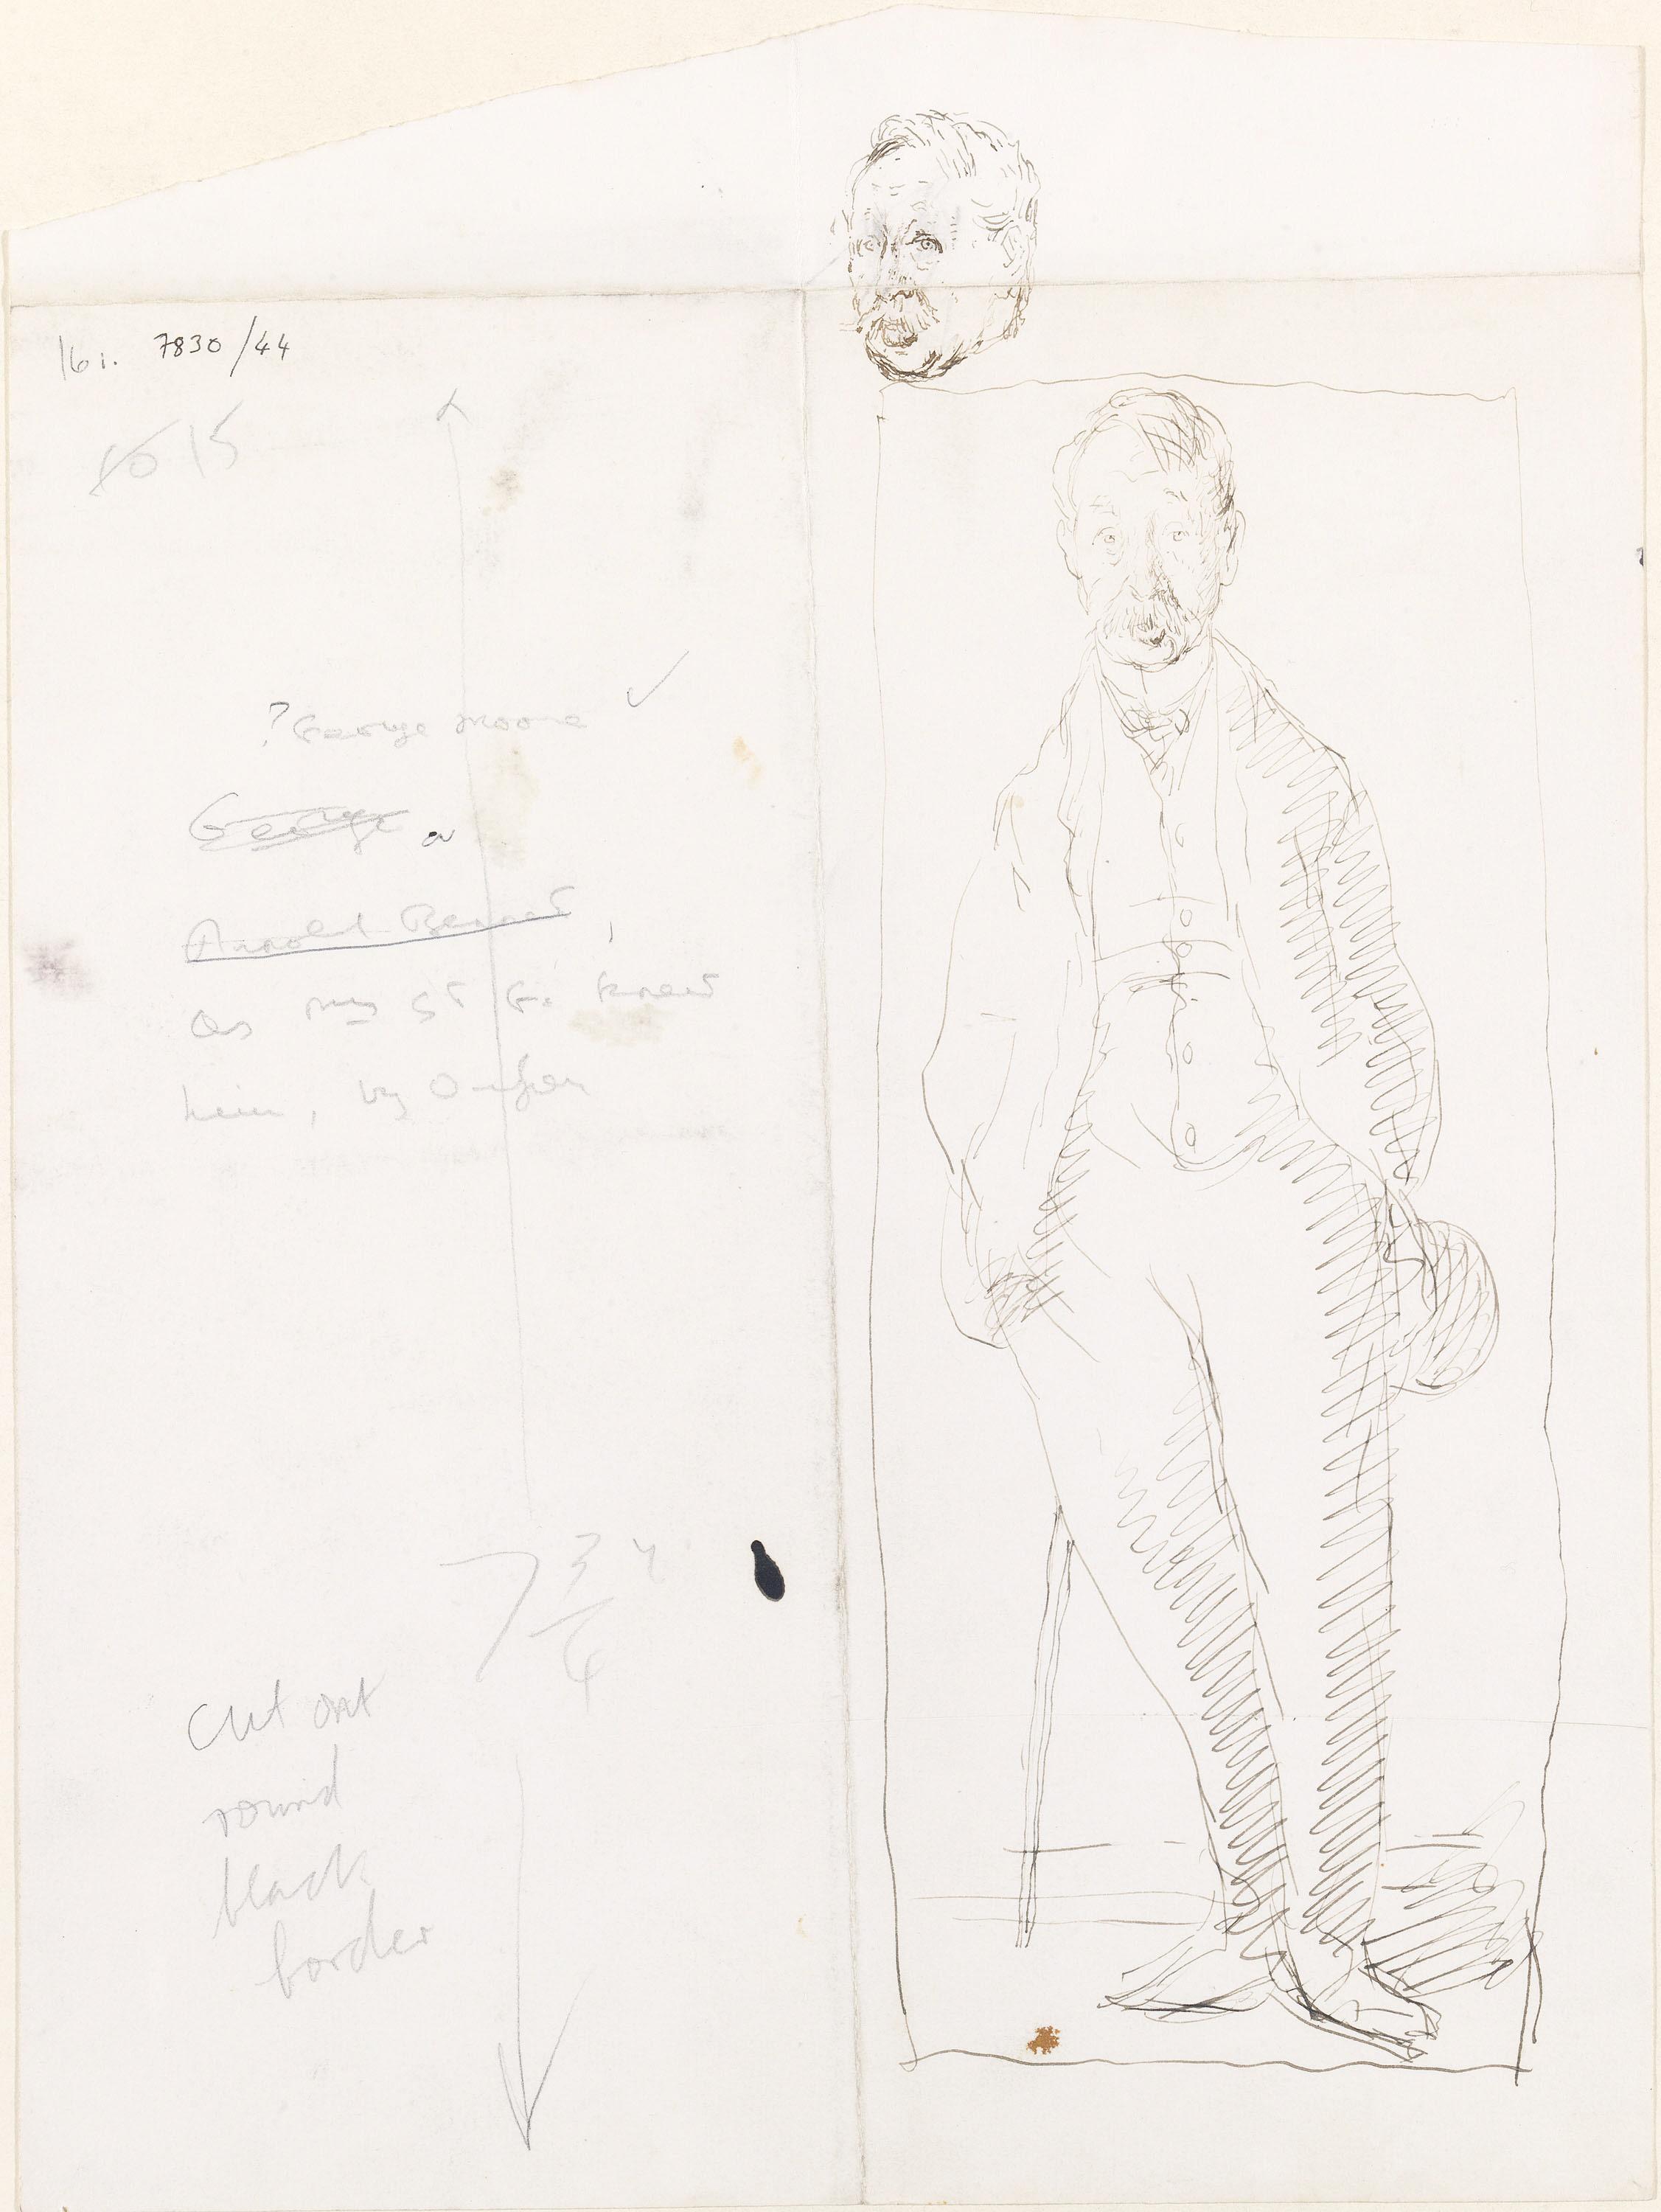 16 i. 7830/44
10 15
? George Moore ✓
George or
Arnold Bennet,
as my St G. knew
him, by
7 3/4
Cut out
round
black
border